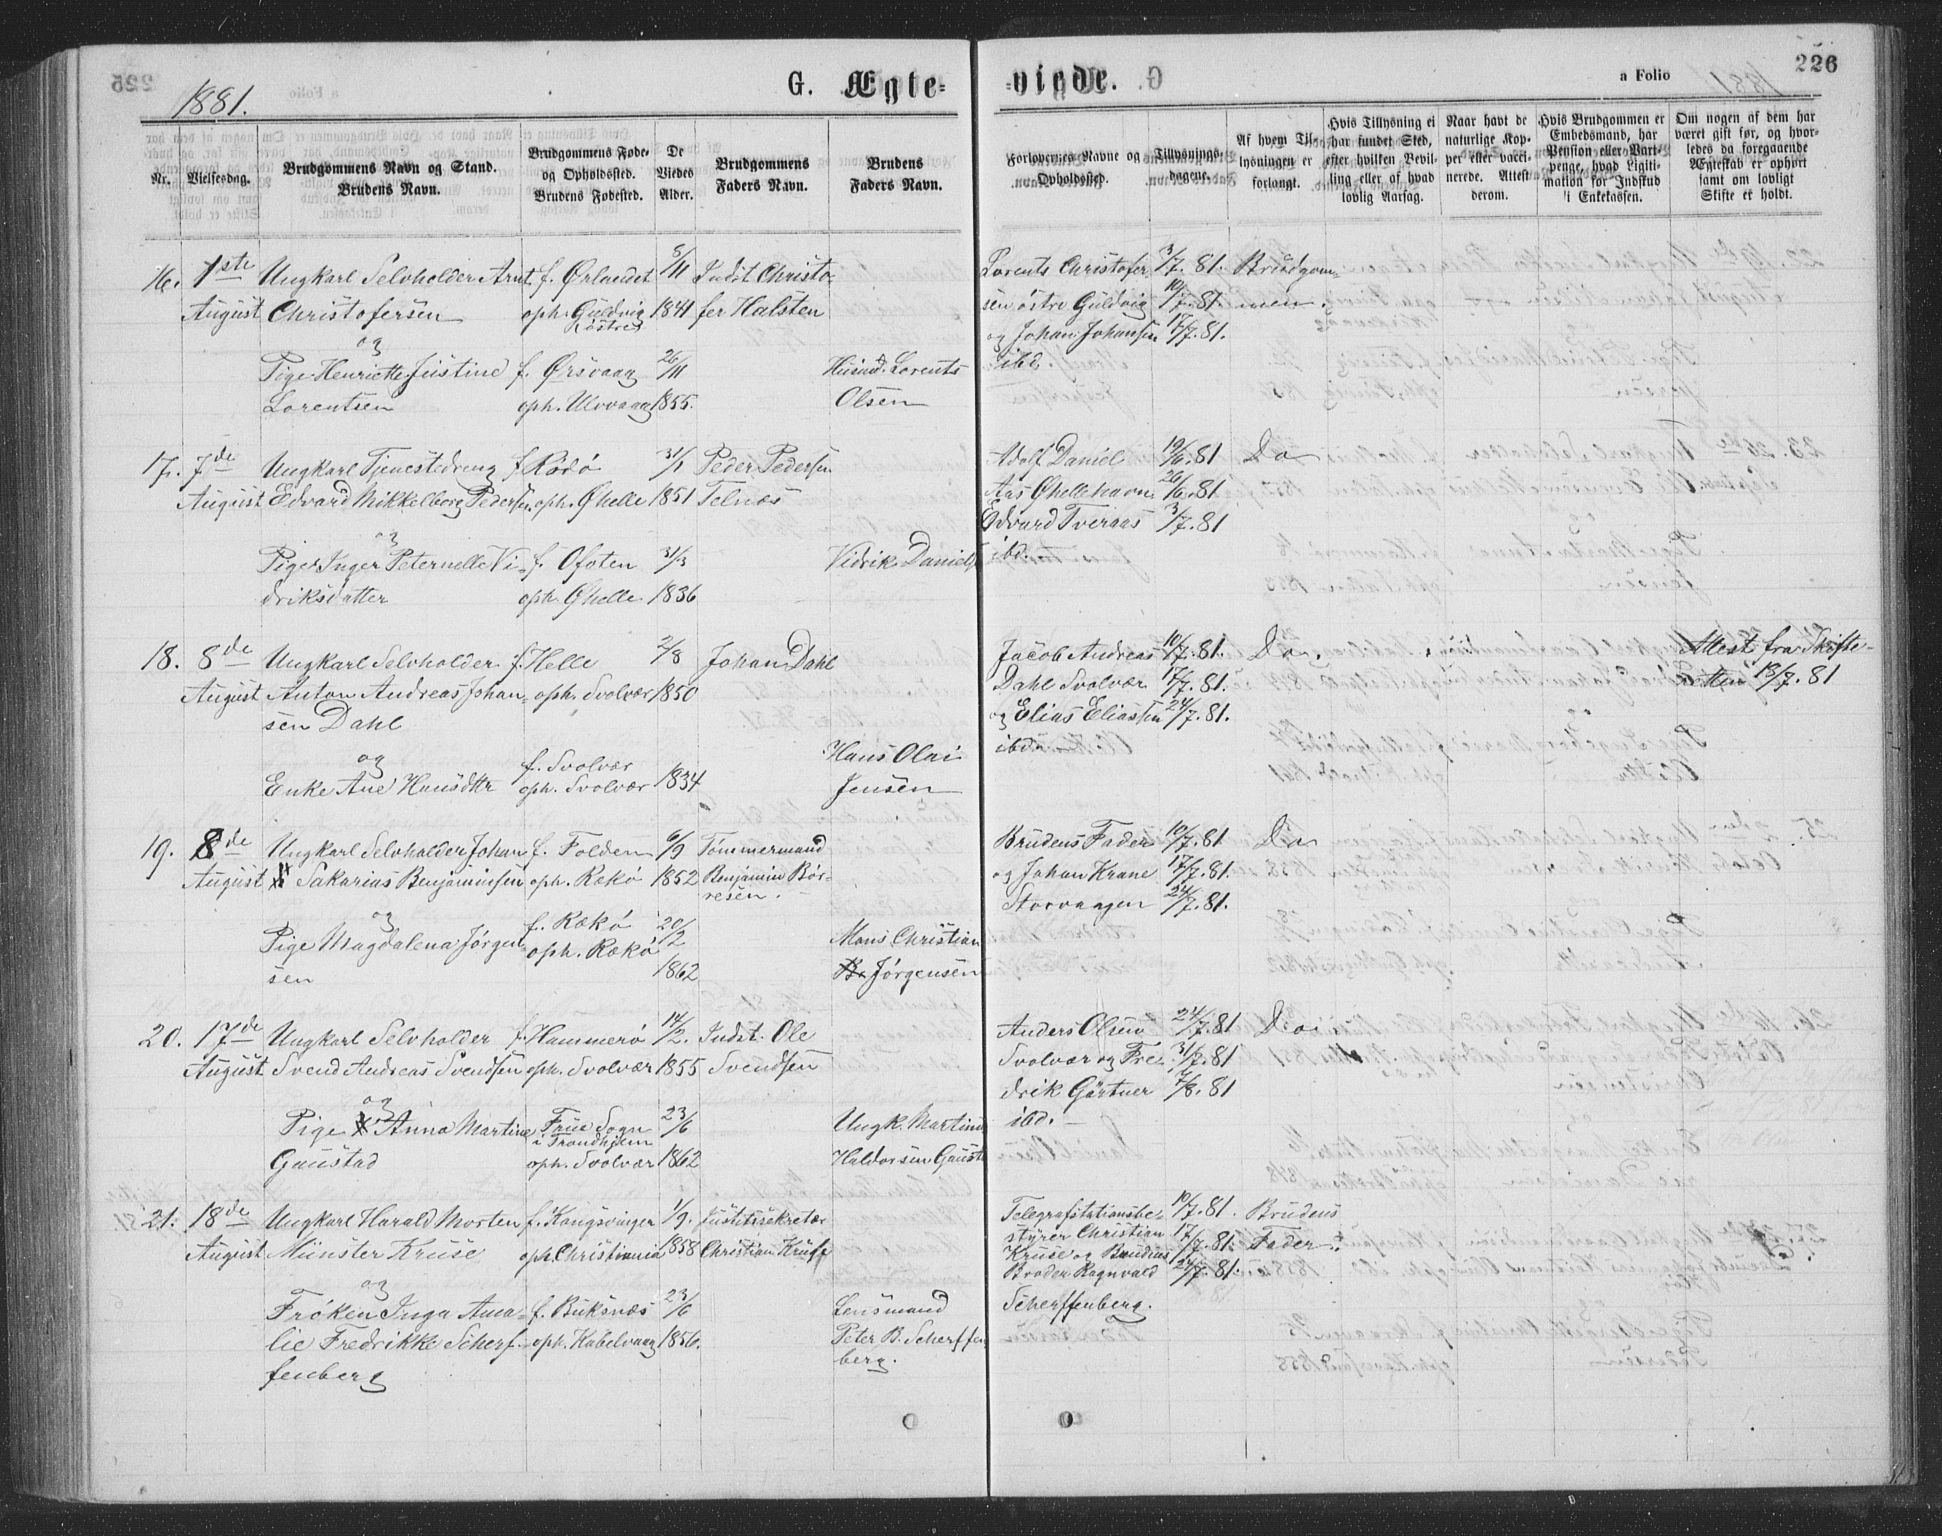 1881.
G. Ægte-
-viede.
a Folio
226
Nr.
Vielsesdag.
Brudgommens Navn og Stand.
Brudens Navn.
Brudgommens Føde-
og Opholdssted.
Brudens Fødested.
De
Viedes
Alder.
Brudgommens
Faders Navn.
Brudens
Faders Navn.
Forlovernes Navne og
Opholdssted.
Tillysnings-
dagene.
Af hvem Til-
lysningen er
forlangt.
Hvis Tillysning ei
har fundet Sted,
efter hvilken Bevil-
ling eller af hvad
lovlig Aarsag.
Naar havt de
naturlige Kop-
per eller vacci-
nerede. Attest
derom.
Hvis Brudgommen er
Embedsmand, har
Pension eller Vart-
penge, hvad Ligiti-
mation for Indskud
i Enkekassen.
Om nogen af dem har
været gift før, og hvor-
ledes da foregaaende
Ægteskab er ophørt
samt om lovligt
Skifte er holdt.
16. 1ste Ungkarl Selvholder Arnt f. Ørlandet 5/11 Indst Christo- Lorents Christofer 3/7. 81. Brudgom-
August Christofersen oph. Guldvig 1841 fer Halsten sen østre Guldvig 10/7. 81. men.
østre og Johan Johansen 17/7. 81.
og
Pige Henriette Justine f. Ørsvaag 26/11 Husmd. Lorents ibd.
Lorentsen oph. Ulvvaag 1855. Olsen
17. 7de Ungkarl Tjenestedreng f. Rödö 31/1 Peder Pedersen Adolf Daniel 19/6. 81 Do
August Edvard Mikkelborg Pedersen oph. Ghelle 1851 Telnæs Aas Ghellehavn 26/6. 81.
Edvard Tveraas 3/7. 81
og
Pige Inger Peternelle Vi- f. Ofoten 31/3 Vidrik Daniels ibd.
driksdatter oph. Ghelle 1836
18. 8de Ungkarl Selvholder f. Helle 2/8 Johan Dahl Jacob Andreas 10/7. 81. Do. Attest fra Skifte-
August Anton Andreas Johan- oph. Svolvær 1850 Dahl Svolvær 17/7. 81. retten 13/7. 81
sen Dahl og Elias Eliassen 24/7. 81.
og ibd.
Enke Ane Hansdttr f. Svolvær 1834 Hans Olai
oph. Svolvær Jensen
19. 8de Ungkarl Selvholder Johan f. Folden 6/9 Tømmermand Brudens Fader 10/7. 81 Do
August Sakarias Benjaminsen oph. Rækø 1852 Benjamin Bør- og Johan Krane 17/7. 81.
resen. Storvaagen 24/7. 81.
og
Pige Magdalena Jørgen- f. Rækø 20/2 Mons Christian
sen oph. Rækø 1862 Jørgensen
20. 17de Ungkarl Selvholder f. Hammerø 14/2. Indst. Ole Anders Olsen 24/7. 81 Do
August Svend Andreas Svendsen oph. Svolvær 1855 Svendsen Svolvær og Fre- 31/7. 81
drik Gärtner 7/8. 81
og
Pige Anna Martine Frue Sogn 23/6 Ungk. Martinus ibd.
Gaustad i Trondhjem
oph. Svolvær 1862 Haldorsen Gaust
21. 18de Ungkarl Harald Morten f. Kongsvinger 1/9. Justitssekretær Telegrafstationsbe- 10/7. 81. Brudens
August Münster Kruse oph Christiania 1858 Christian Kruse styrer Christian 17/7. 81. Fader.
Kruse og Brudens 24/7. 81.
og Broder Ragnvald
Frøken Inga Ama- f. Buksnæs 23/6 Lensmand Scherffenberg.
lie Fredrikke Scherf- oph. Kabelvaag 1856. Peter B. Scherffen
fenberg berg.